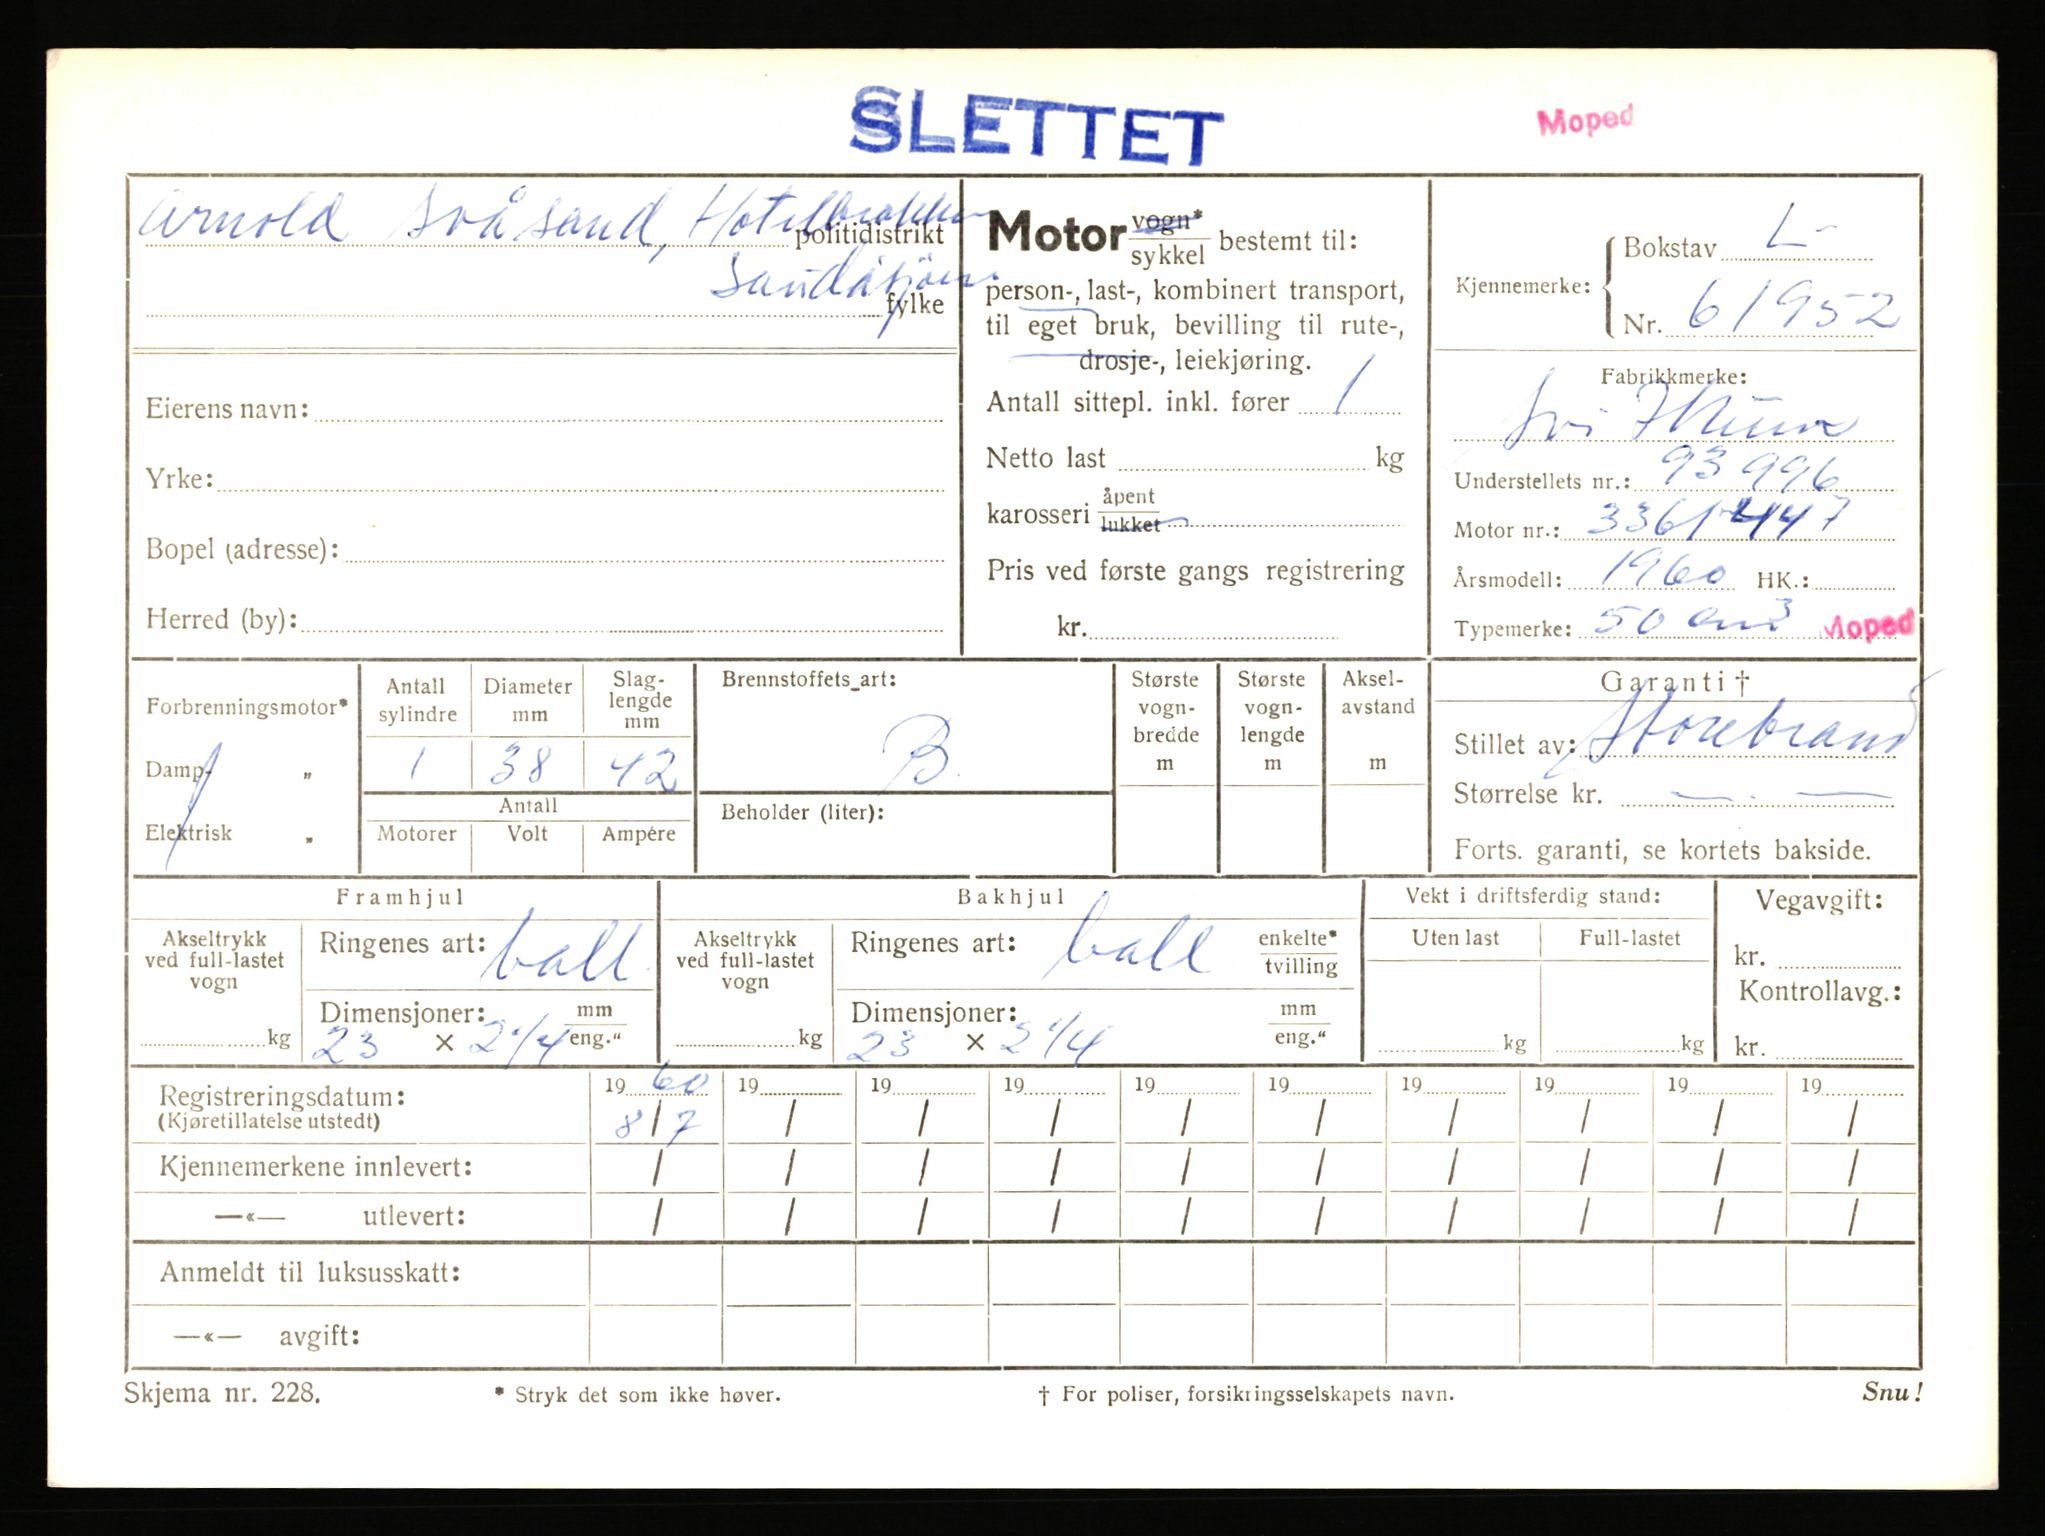 SLETTET
Moped
Arnold Svåsand,
politidistrikt
fylke
Eierens navn:
Yrke:
Bopel (adresse):
Herred (by):
Motor vogn* / sykkel bestemt til:
person-, last-, kombinert transport,
til eget bruk, bevilling til rute-,
drosje-, leiekjøring.
Antall sittepl. inkl. fører 1
Netto last kg
karosseri åpent / lukket
Pris ved første gangs registrering
kr.
Kjennemerke: Bokstav L-
Nr. 61952
Fabrikkmerke:
Understellets nr.: 93996
Motor nr.:
Årsmodell: 1960 HK.:
Typemerke: 50 cm3 Moped
Forbrenningsmotor*
Damp- „
Elektrisk „
Antall sylindre
Diameter mm
Slag-
lengde
mm
1 38 42
Antall
Motorer Volt Ampére
Brennstoffets art:
B
Beholder (liter):
Største
vogn-
bredde
m
Største
vogn-
lengde
m
Aksel-
avstand
m
Garanti †
Stillet av: Storebrand
Størrelse kr. — . —
Forts. garanti, se kortets bakside.
Framhjul
Akseltrykk
ved full-lastet
vogn
kg
Ringenes art: ball
Dimensjoner: mm / eng."
23 × 2 1/4
Bakhjul
Akseltrykk
ved full-lastet
vogn
kg
Ringenes art: ball enkelte* / tvilling
Dimensjoner: mm / eng."
23 × 2 1/4
Vekt i driftsferdig stand:
Uten last Full-lastet
kg kg
Vegavgift:
kr.
Kontrollavg.:
kr.
Registreringsdatum: 1960 19 19 19 19 19 19 19 19 19
(Kjøretillatelse utstedt) 8/7 / / / / / / / / /
Kjennemerkene innlevert: / / / / / / / / / /
—«— utlevert: / / / / / / / / / /
Anmeldt til luksusskatt:
—«— avgift:
Skjema nr. 228. * Stryk det som ikke høver. † For poliser, forsikringsselskapets navn. Snu!